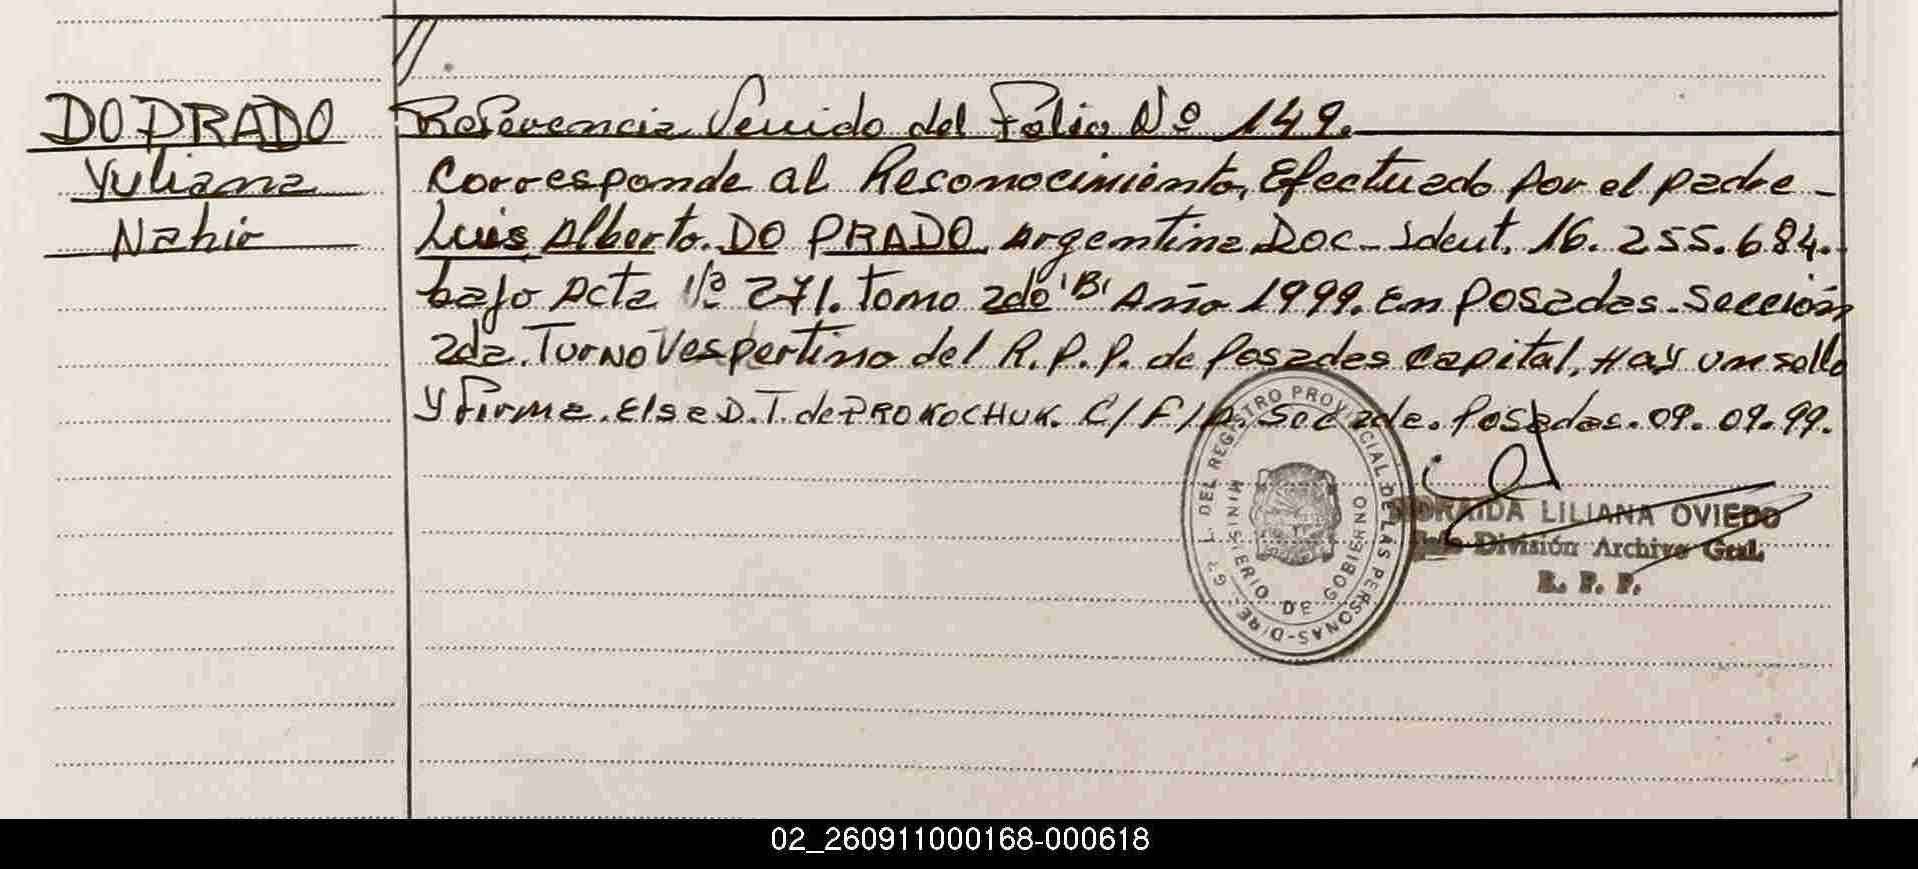 //
DO PRADO
Yuliana
Nahir
Referencia Venido del Folio Nº 149.
Corresponde al Reconocimiento, Efectuado por el padre -
Luis Alberto. DO PRADO Argentina Doc. Ident. 16. 255. 684.
bajo Acta Nº 271. Tomo 2do 'B' Año 1999. En Posadas. Sección
2da. Turno Vespertino del R. P. P. de Posadas Capital. Hay un sello
y firma. Elsa D. T. de PROKOCHUK. C/ F/ Sec 2da. Posadas. 09. 09. 99.
DEL REGISTRO PROVINCIAL DE LAS PERSONAS
MINISTERIO DE GOBIERNO
LILIANA OVIEDO
División Archivo Gral.
R. P. P.
02_260911000168-000618